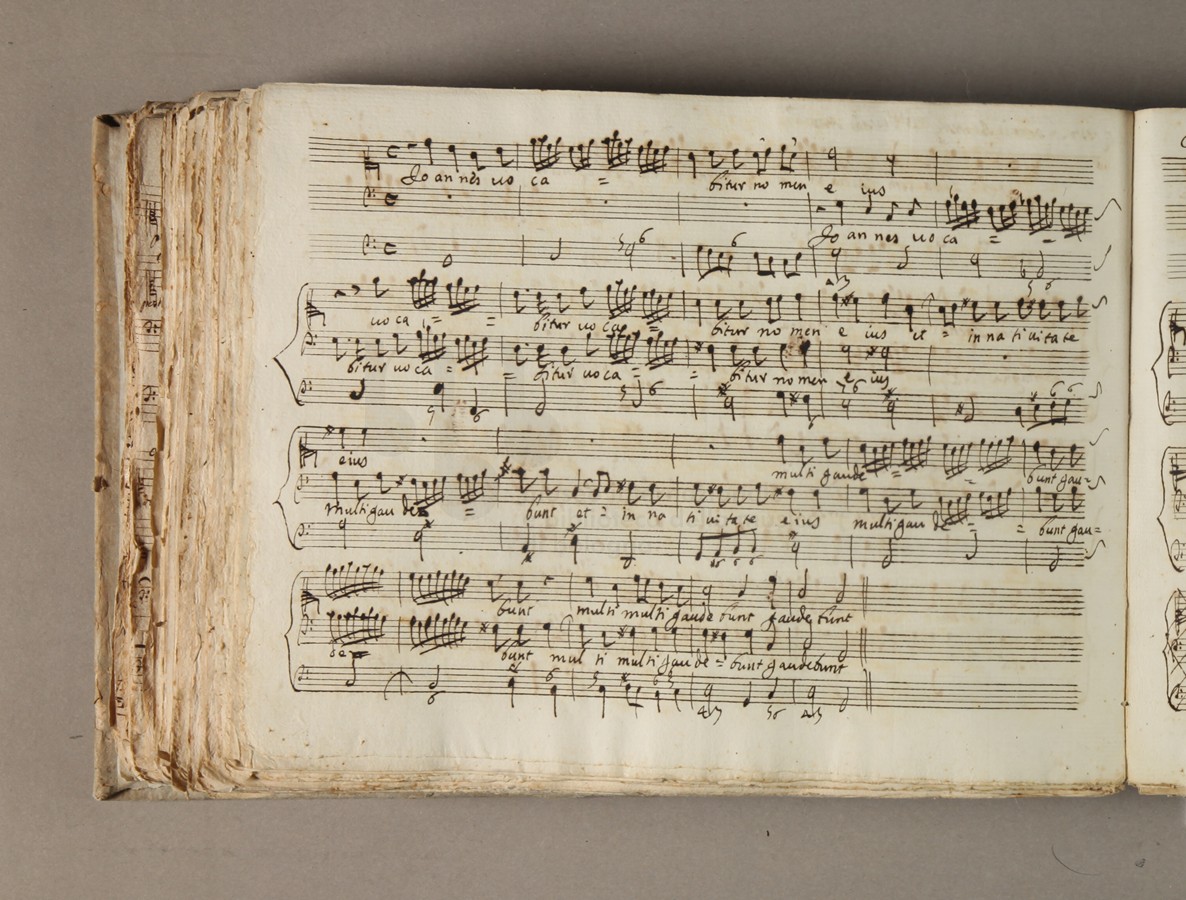 Joannes uo ca = bitur no men e ius
Jo an nes uo ca = =
uo ca = = bitur uo ca = bitur no men e ius et = in na ti uita te
bitur uo ca = = bitur uo ca = = bitur no men e ius
eius multi gaude = = bunt gau=
multi gau de = bunt et = in na ti uita te eius multi gau de = = bunt gau=
bunt multi multi gaude bunt gaude bunt
de = bunt mul ti multi gau de = bunt gaudebunt